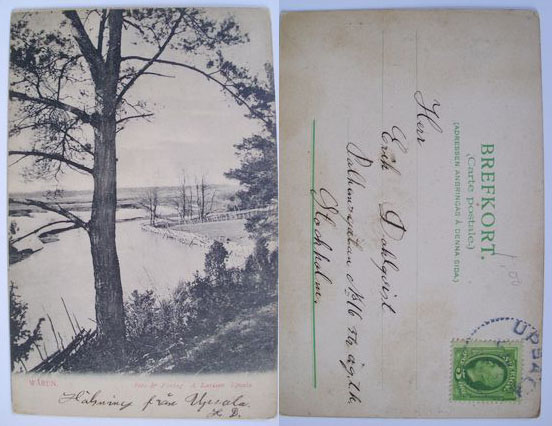 WÅREN.
Foto & Förlag A. Larsson Upsala.
Hälsning från Upsala
BREFKORT.
(Carte postale.)
(ADRESSEN ANBRINGAS Å DENNA SIDA.)
Herr
Erik Dahlqvist
Stockholm
1,00
UPSALA
5
SVERIGE